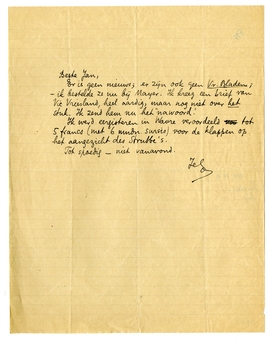 Beste Jan,
Er is geen nieuws; er zijn ook geen Vr. Bladen;
– ik bestelde ze nu bij Mayer. Ik kreeg een brief van
Vic Vriesland, heel aardig, maar nog niet over het
stuk. Ik zend hem nu het 'nawoord'.
Ik werd eergisteren in Wavre veroordeeld tot
5 francs (met 6 mndn. sursis) voor de klappen op
het aangezicht des Strubbe's.
Tot spoedig – niet vanavond.